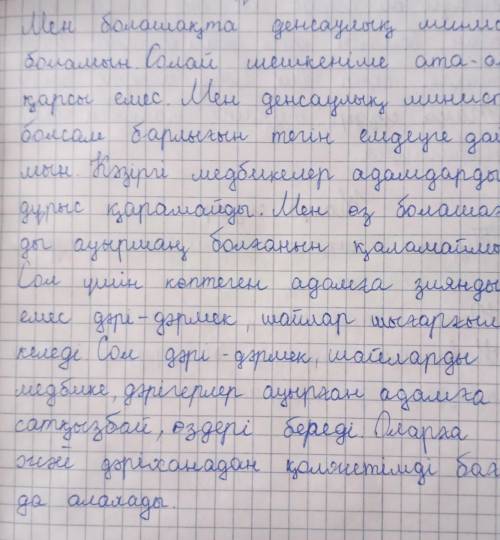 Мен болашақта денсаулық минис
боламын. Солай шешкеніме ата-а
қарсы емес. Мен денсаулық минис
болсам барлығын тегін емдеуге дай
мын. Кәзіргі медбикелер адамдарды
дұрыс қарамайды. Мен өз болашағ
ды ауырмаң болғанын қаламаймы
Сол үшін көптеген адамға зиянды
емес дәрі-дәрмек, шайлар шығарғым
келеді Сол дәрі-дәрмек, шайларды
медбике, дәрігерлер ауырған адамға
сатқызбай, өздері береді. Оларға
жәй дәріханадан қолжетімді баға
да алалады.